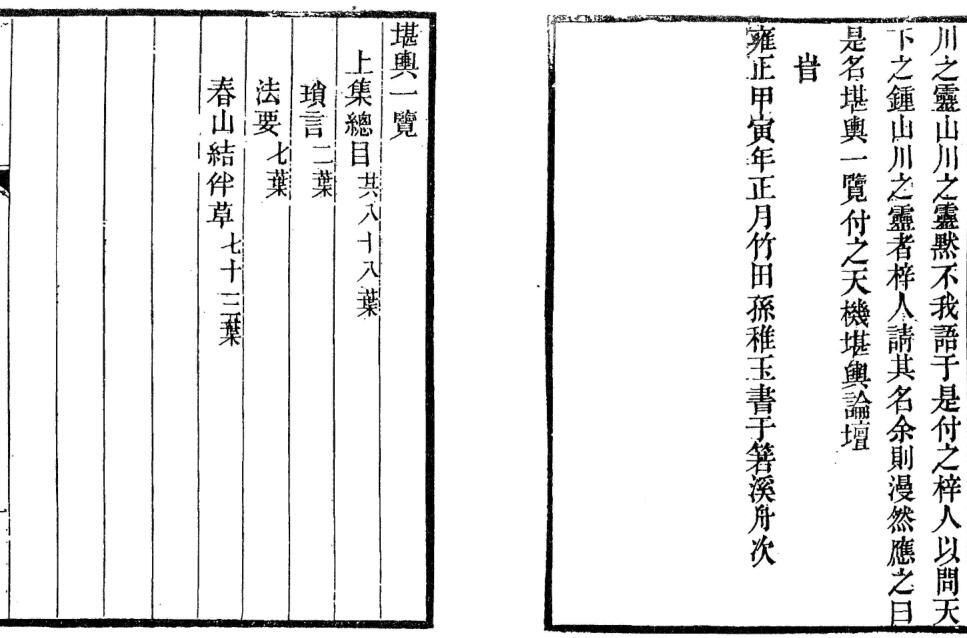 川之靈山川之靈默不我語于是付之梓人以問天
下之鍾山川之靈者梓人請其名余則漫然應之曰
是名堪輿一覽付之天機堪輿論壇
旹
雍正甲寅年正月竹田孫稚玉書于箬溪舟次
堪輿一覽
上集總目共八十八葉
瑣言二葉
法要七葉
春山結伴草七十三葉